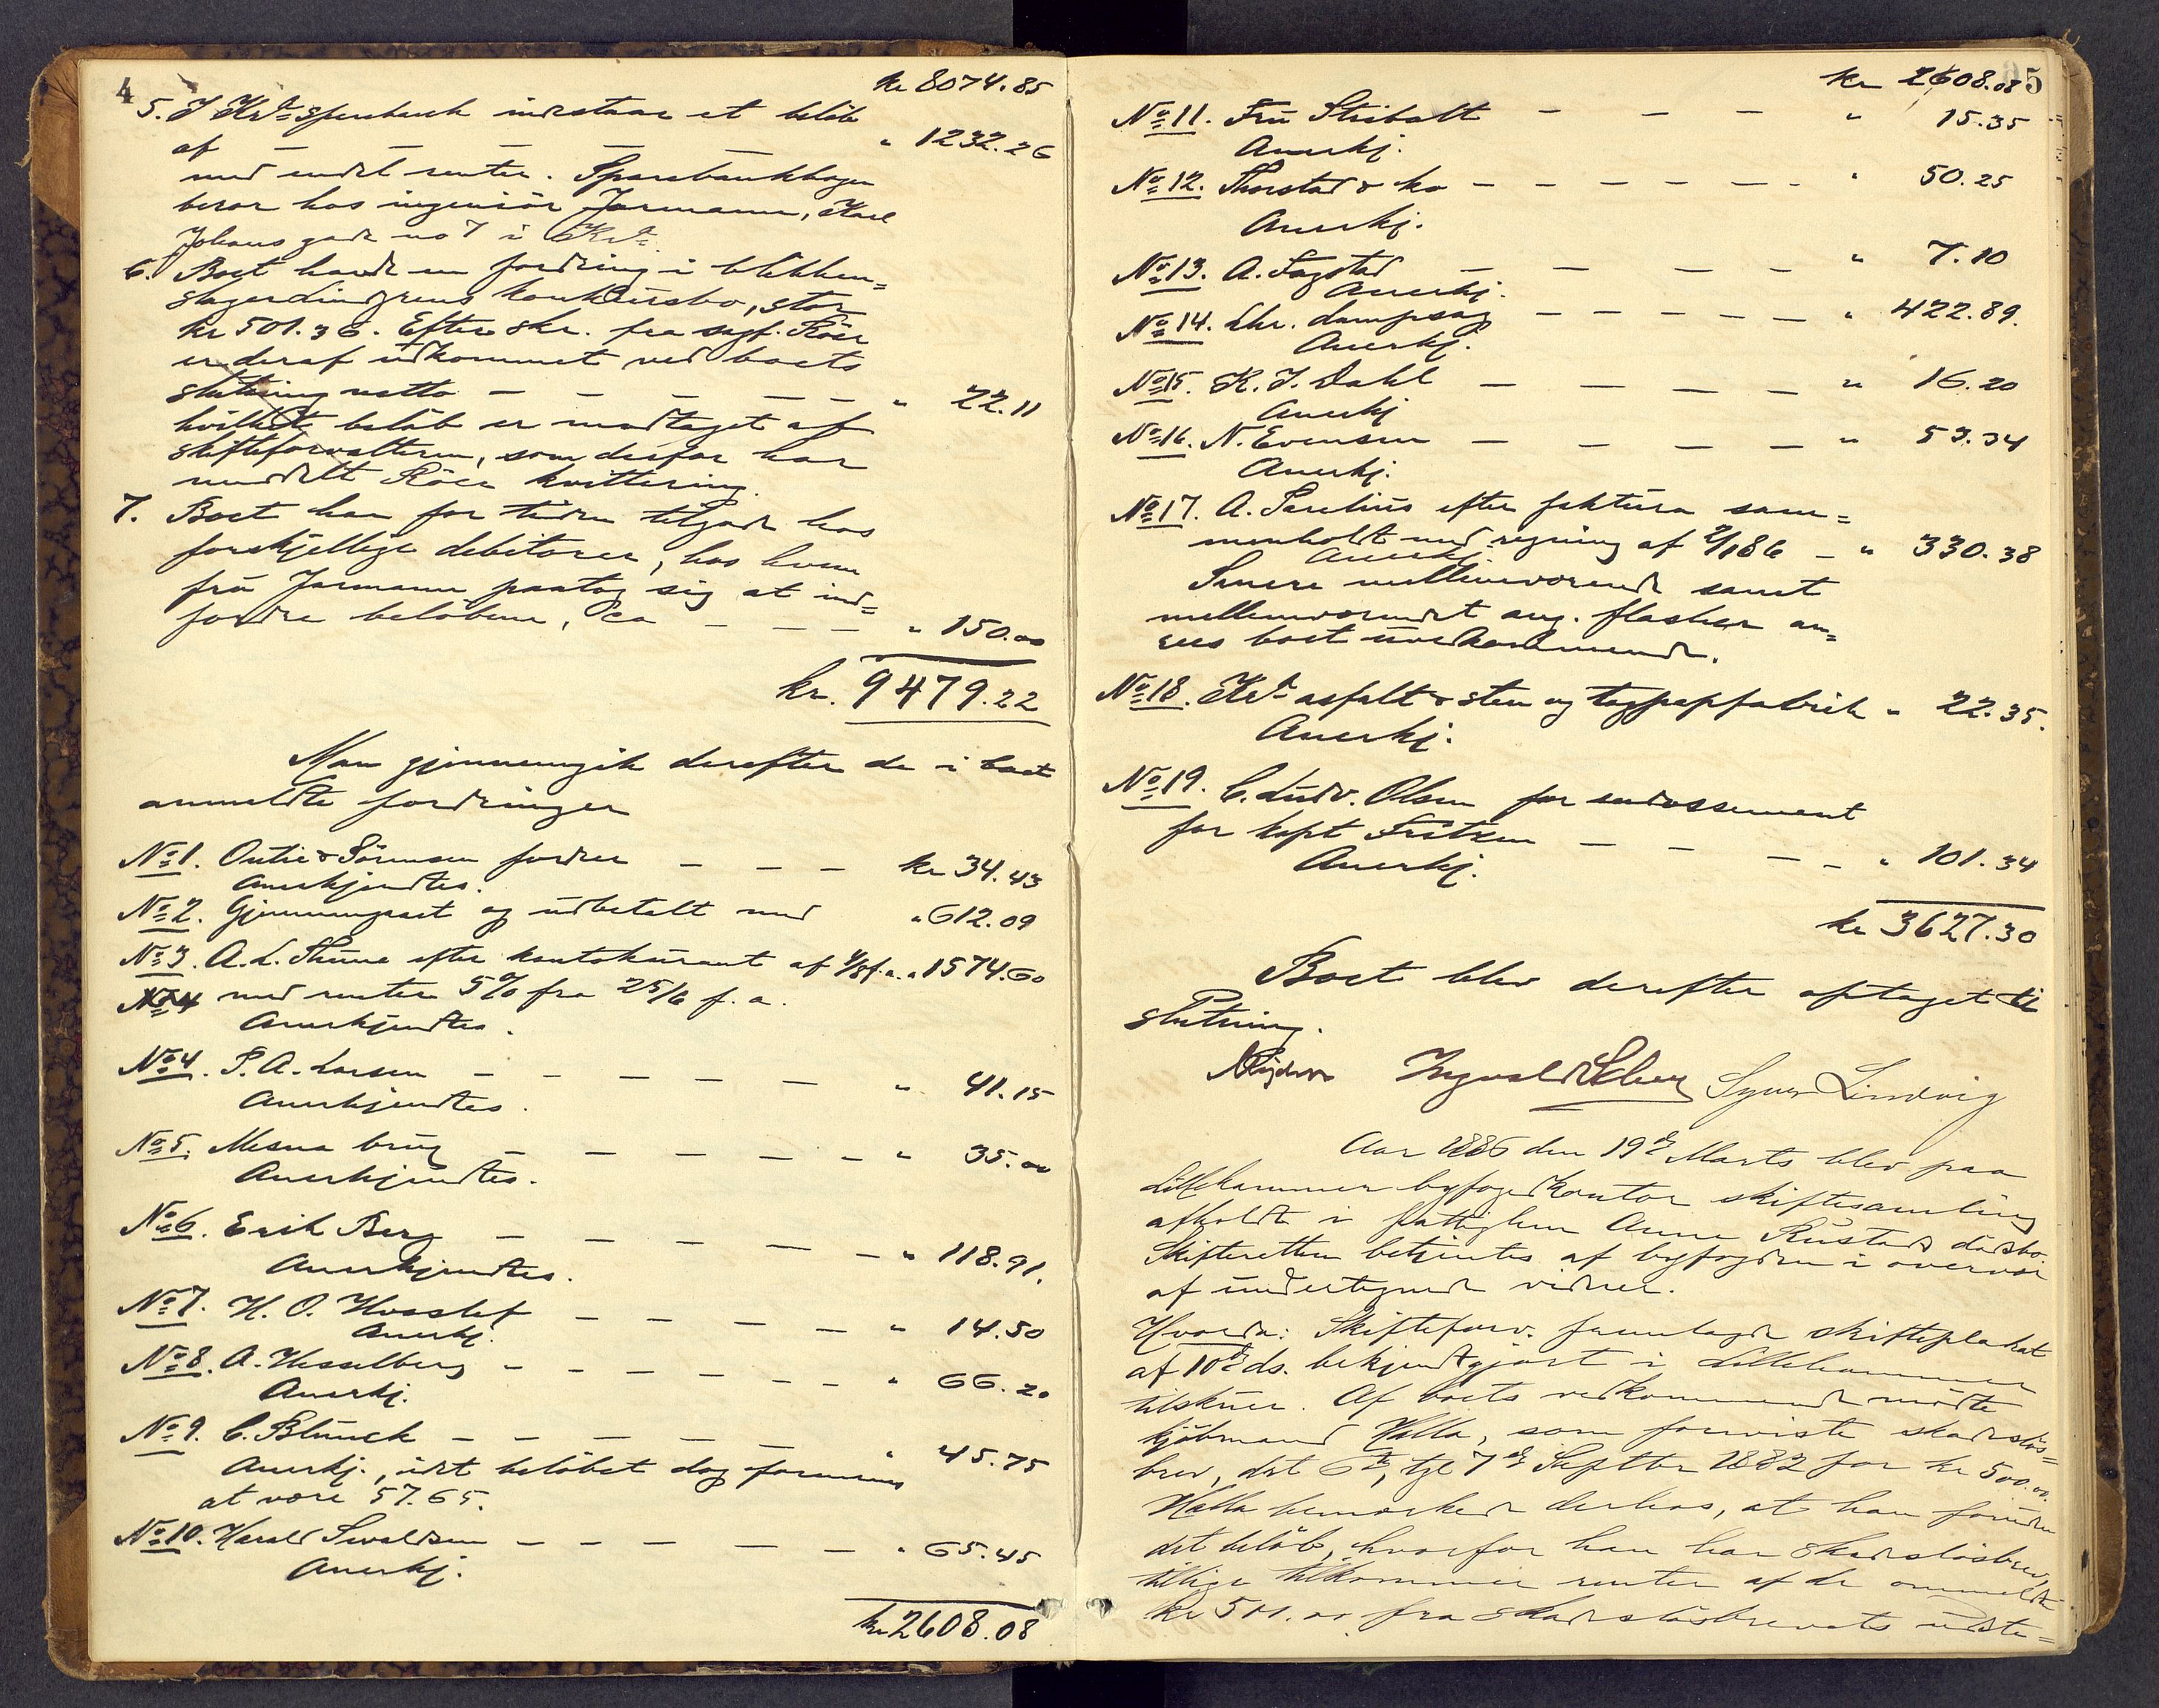 4
kr 8074.85
5. I Kra Sparebank indestaar et beløb
af — — — — — " 1232.26
med endel renter. Sparebankbogen
beror hos ingeniør Jarmann, Karl
Johans gade no 7 i Kra.
6. Boet havde en fordring i blikken=
slager Lindgrens konkursbo, stor
kr 501.36. Efter skr. fra sagf. Röer
er deraf udkommet ved boets
slutning netto — — — — — " 22.11
hvilket beløb er modtaget af
skifteforvalteren, som derfor har
meddelt Röer kvittering.
7. Boet har for tiden tilgode hos
forskjellige debitorer, hos hvem
frü Jarmann paatog sig at ind=
fordre beløbene, ca — — — " 150.00
kr. 9479.22
Man gjennemgik derefter de i boet
anmeldte fordringer
No 1. Outie & Sörensen fordrer — — — kr 34.43
Anerkjendtes.
No 2. Gjennemgaaet og udbetalt med " 612.09
No 3. A. L. Thune efter kontokurant af 4/8 f.a. " 1574.60
No 4 med renter 5% fra 25/6 f. a.
Anerkjendtes.
No 4. P. A. Larsen — — — — — " 41.15
Anerkjendtes.
No 5. Mesna brug — — — — — " 35.00
Anerkjendtes.
No 6. Erik Berg — — — — — " 118.91.
Anerkjendtes.
No 7. H. O. Hosslef — — — — " 14.50
Anerkj.
No 8. A. Hesselberg — — — — — " 66.20
Anerkj.
No 9. C. Blunck — — — — — " 45.75
Anerkj., idet beløbet dog formenes
at være 57.65.
No 10. Harald Svaldsen — — — — — " 65.45
Anerkj.
kr 2608.08
5
kr 2608.08
No 11. Frü Stibolt — — — " 15.35
Anerkj.
No 12. Thorstad & ko — — — — — — " 50.25
Anerkj.
No 13. A. Fagstad — — — — " 7.10
Anerkj.
No 14. Lhr. dampsag — — — — — " 422.89.
Anerkj.
No 15. K. J. Dahl — — — — " 16.20
Anerkj
No 16. N. Evensen — — — — " 53.34
Anerkj.
No 17. A. Sarelius efter faktura sam=
menholdt med regning af 2/1 86 — " 330.38
Anerkj.
Senere mellemværende samt
mellemværendet ang. flasker an=
sees boet uvedkommende.
No 18. Kra asfalt & sten og tagpapfabrik " 22.35.
Anerkj.
No 19. C. Ludv. Olsen for endossement
for kapt Fritzen — — — — " 101.34
Anerkj.
kr 3627.30
Boet blev derefter optaget til
slutning.
Ingvald Syver Lindvig
Aar 1886 den 19de Marts blev paa
Lillehammer byfogedkontor skiftesamling
afholdt i fattiglem Anne Rustads dødsbo
Skifteretten betjentes af byfogden i overvær
af undertegnede vidner.
Hvorda: Skifteforv. fremlagde skifteplakat
af 10de ds. bekjendtgjort i Lillehammer
tilskuer. Af boets vedkommende mødte
kjøbmand Halla, som foreviste skadesløs=
brev, dat 6te, tgl 7de Septbr 1882 for kr 500.00.
Halla bemærkede derhos, at han foruden
det beløb, hvorfor han har skadesløsbrev,
tillige tilkommer renter af de anmeldte
kr 500.00 fra skadesløsbrevets udste=